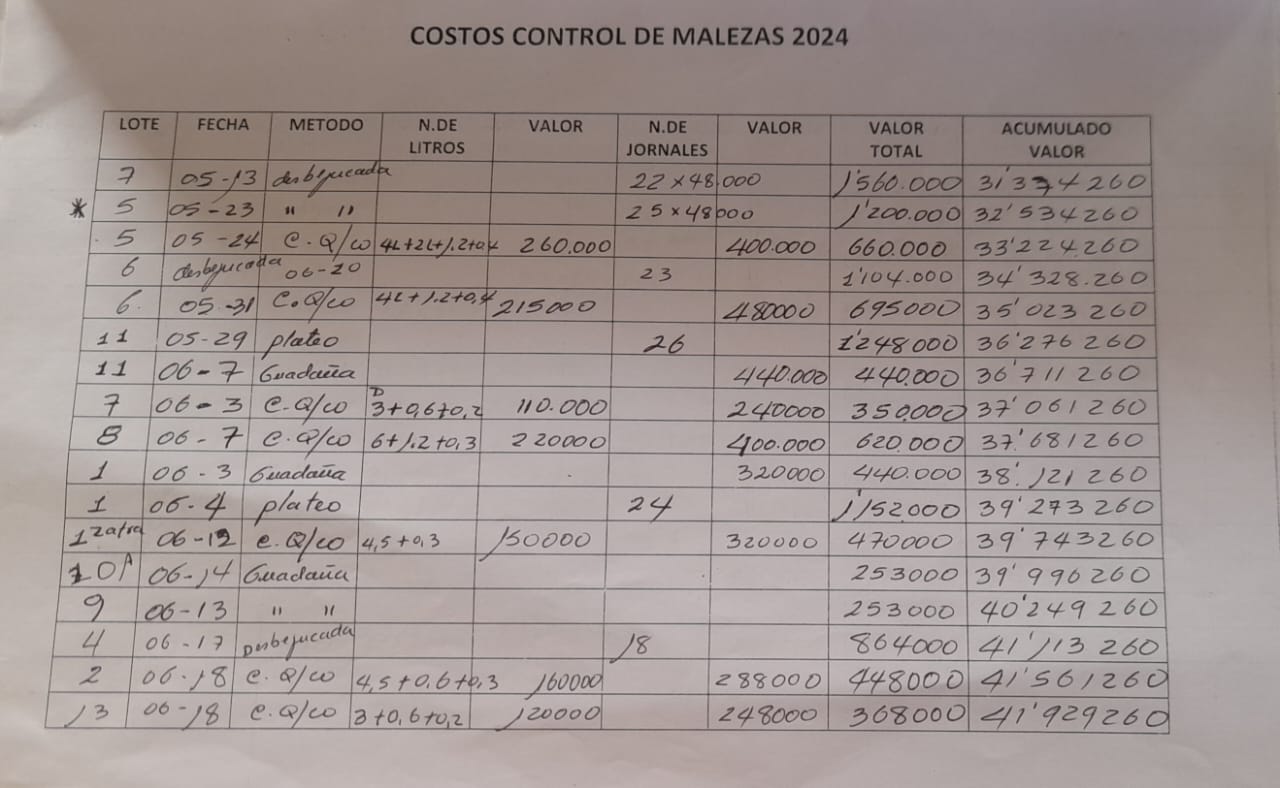 COSTOS CONTROL DE MALEZAS 2024
LOTE FECHA METODO N.DE LITROS VALOR N.DE JORNALES VALOR VALOR TOTAL ACUMULADO VALOR
7 05-13 desbejucada 22 x 48.000 1'560.000 31'334260
* 5 05-23 " " 25 x 48000 1'200.000 32'534260
5 05-24 C.Q/co 4L+2L+1.2+0,4 260.000 400.000 660.000 33'224260
6 desbejucada 06-20 23 1'104.000 34'328.260
6. 05-31 C.Q/co 4L+1.2+0,4 215000 480000 695000 35'023260
11 05-29 plateo 26 1'248000 36'276260
11 06-7 Guadaña 440.000 440.000 36'711260
7 06-3 C.Q/co D 3+0,6+0,2 110.000 240000 350.000 37'061260
8 06-7 C.Q/co 6+1.2+0,3 220000 400.000 620.000 37'681260
1 06-3 Guadaña 320000 440.000 38'121260
1 06-4 plateo 24 1'152.000 39'273260
1 zafra 06-12 C.Q/co 4,5+0,3 150000 320000 470000 39'743260
10A 06-14 Guadaña 253000 39'996260
9 06-13 " " 253000 40'249260
4 06-17 Desbejucada 18 864000 41'113260
2 06-18 C.Q/co 4,5+0,6+0,3 160000 288000 448000 41'561260
13 06-18 C.Q/co 3+0,6+0,2 120000 248000 368000 41'929260